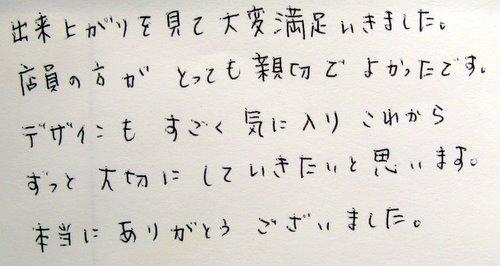 出来上がりを見て大変満足いきました。
店員の方が とっても親切でよかったです。
デザインも すごく気に入り これから
ずっと大切にしていきたいと思います。
本当にありがとうございました。